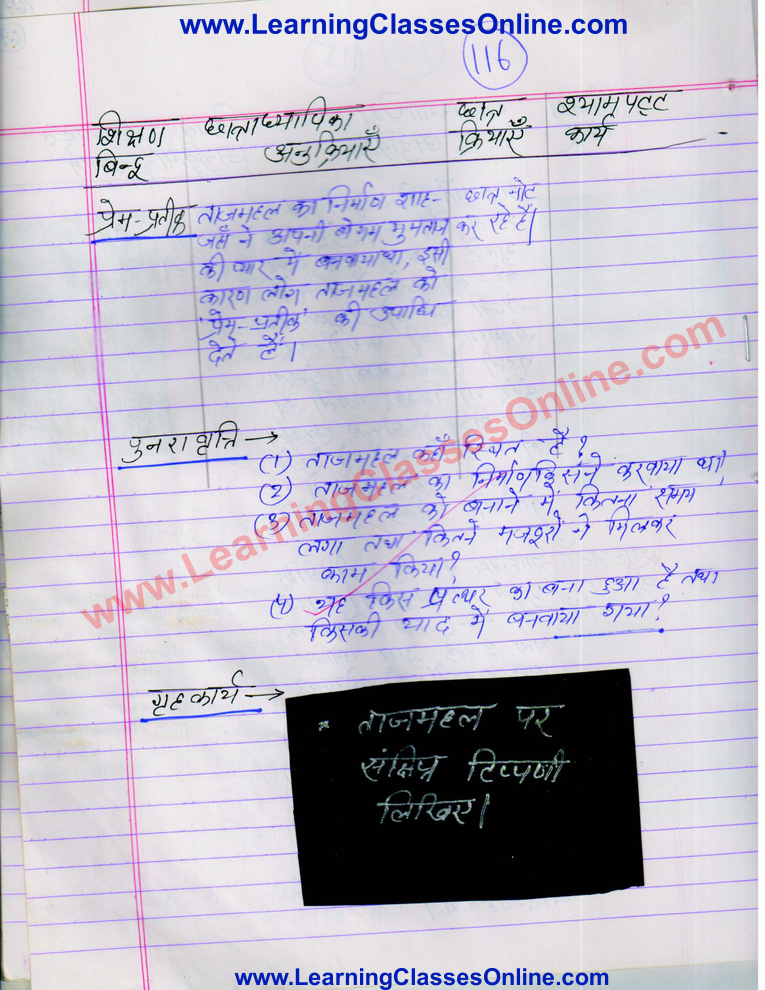 www.LearningClassesOnline.com
116
शिक्षण बिन्दू छात्राध्यापिका अनुक्रियाएँ छात्र क्रियाएँ श्यामपट्ट कार्य
प्रेम-प्रतीक ताजमहल का निर्माण शाह- छात्र नोट
जहाँ ने अपनी बेगम मुमताज कर रहे हैं।
की प्यार में बनवाया था, इसी
कारण लोग ताजमहल को
'प्रेम-प्रतीक' की उपाधि
देते हैं।
पुनरावृत्ति →
(1) ताजमहल कहाँ स्थित है?
(2) ताजमहल का निर्माण किसने करवाया था।
(3) ताजमहल को बनाने में कितना समय
लगा तथा कितने मजदूरों ने मिलकर
काम किया?
(4) यह किस पत्थर का बना हुआ है तथा
किसकी याद में बनवाया गया?
www.LearningClassesOnline.com
गृहकार्य →
* ताजमहल पर
संक्षिप्त टिप्पणी
लिखिए।
www.LearningClassesOnline.com